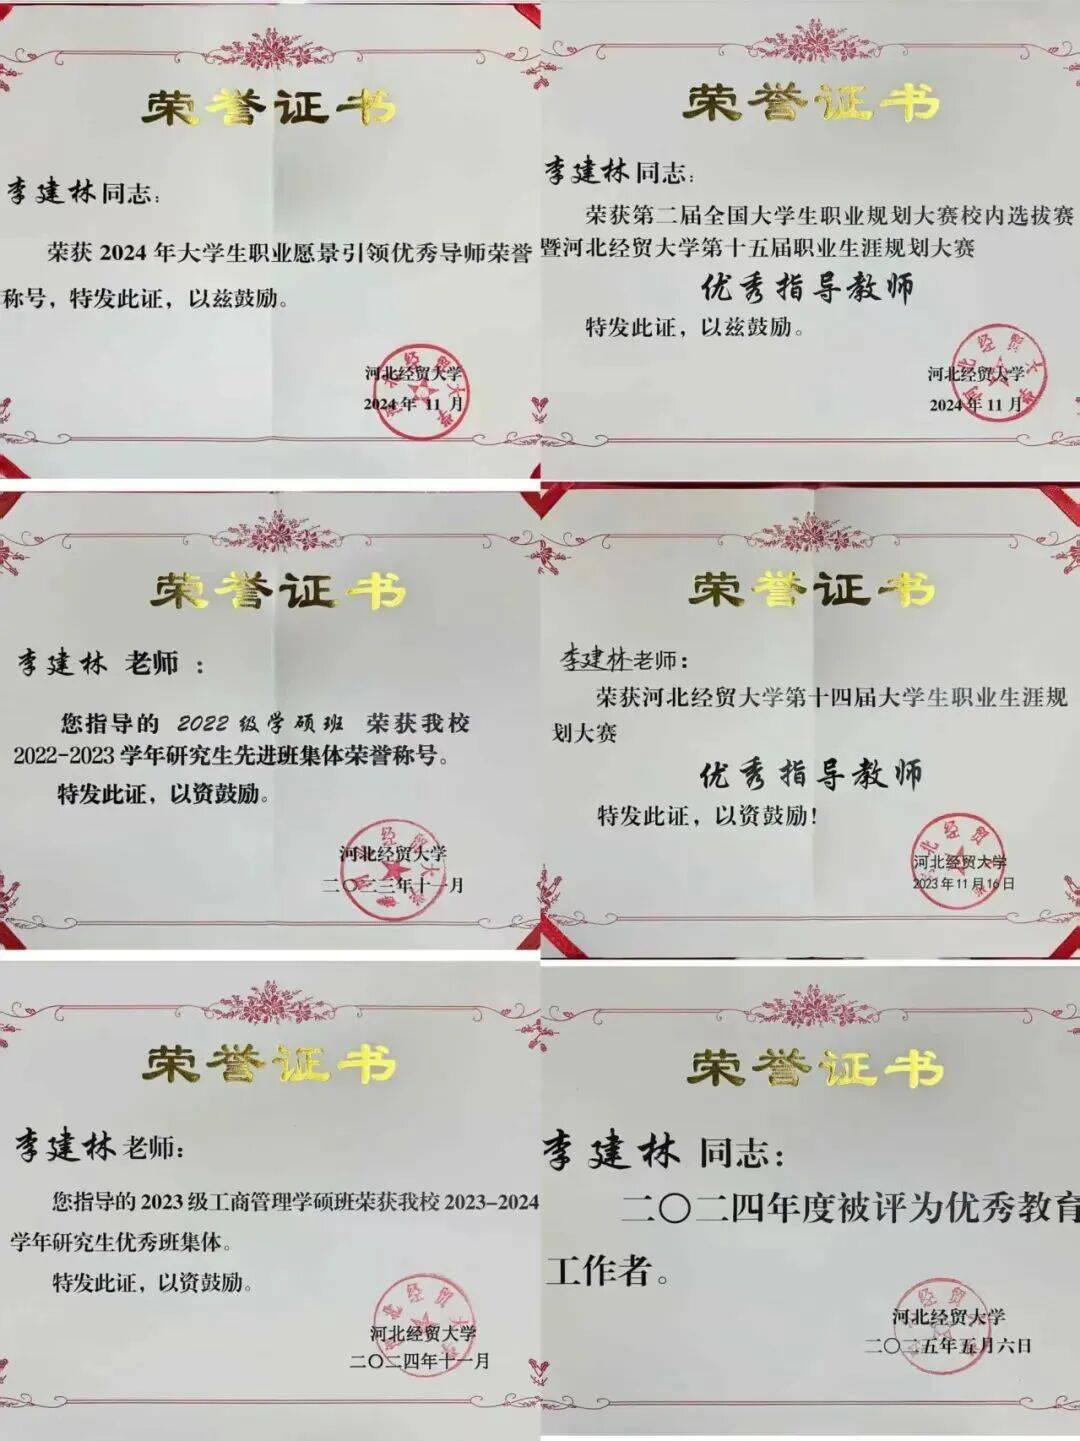 荣誉证书
李建林同志：
荣获 2024 年大学生职业愿景引领优秀导师荣誉
称号，特发此证，以兹鼓励。
河北经贸大学
2024 年 11 月
荣誉证书
李建林同志：
荣获第二届全国大学生职业规划大赛校内选拔赛
暨河北经贸大学第十五届职业生涯规划大赛
优秀指导教师
特发此证，以兹鼓励。
河北经贸大学
2024 年 11 月
荣誉证书
李建林 老师 ：
您指导的 2022 级学硕班 荣获我校
2022-2023 学年研究生先进班集体荣誉称号。
特发此证，以资鼓励。
河北经贸大学
二〇二三年十一月
荣誉证书
李建林老师：
荣获河北经贸大学第十四届大学生职业生涯规
划大赛
优秀指导教师
特发此证，以资鼓励！
河北经贸大学
2023 年 11 月 16 日
荣誉证书
李建林老师：
您指导的 2023 级工商管理学硕班荣获我校 2023-2024
学年研究生优秀班集体。
特发此证，以资鼓励。
河北经贸大学
二〇二四年十一月
荣誉证书
李建林 同志：
二〇二四年度被评为优秀教育
工作者。
河北经贸大学
二〇二五年五月六日